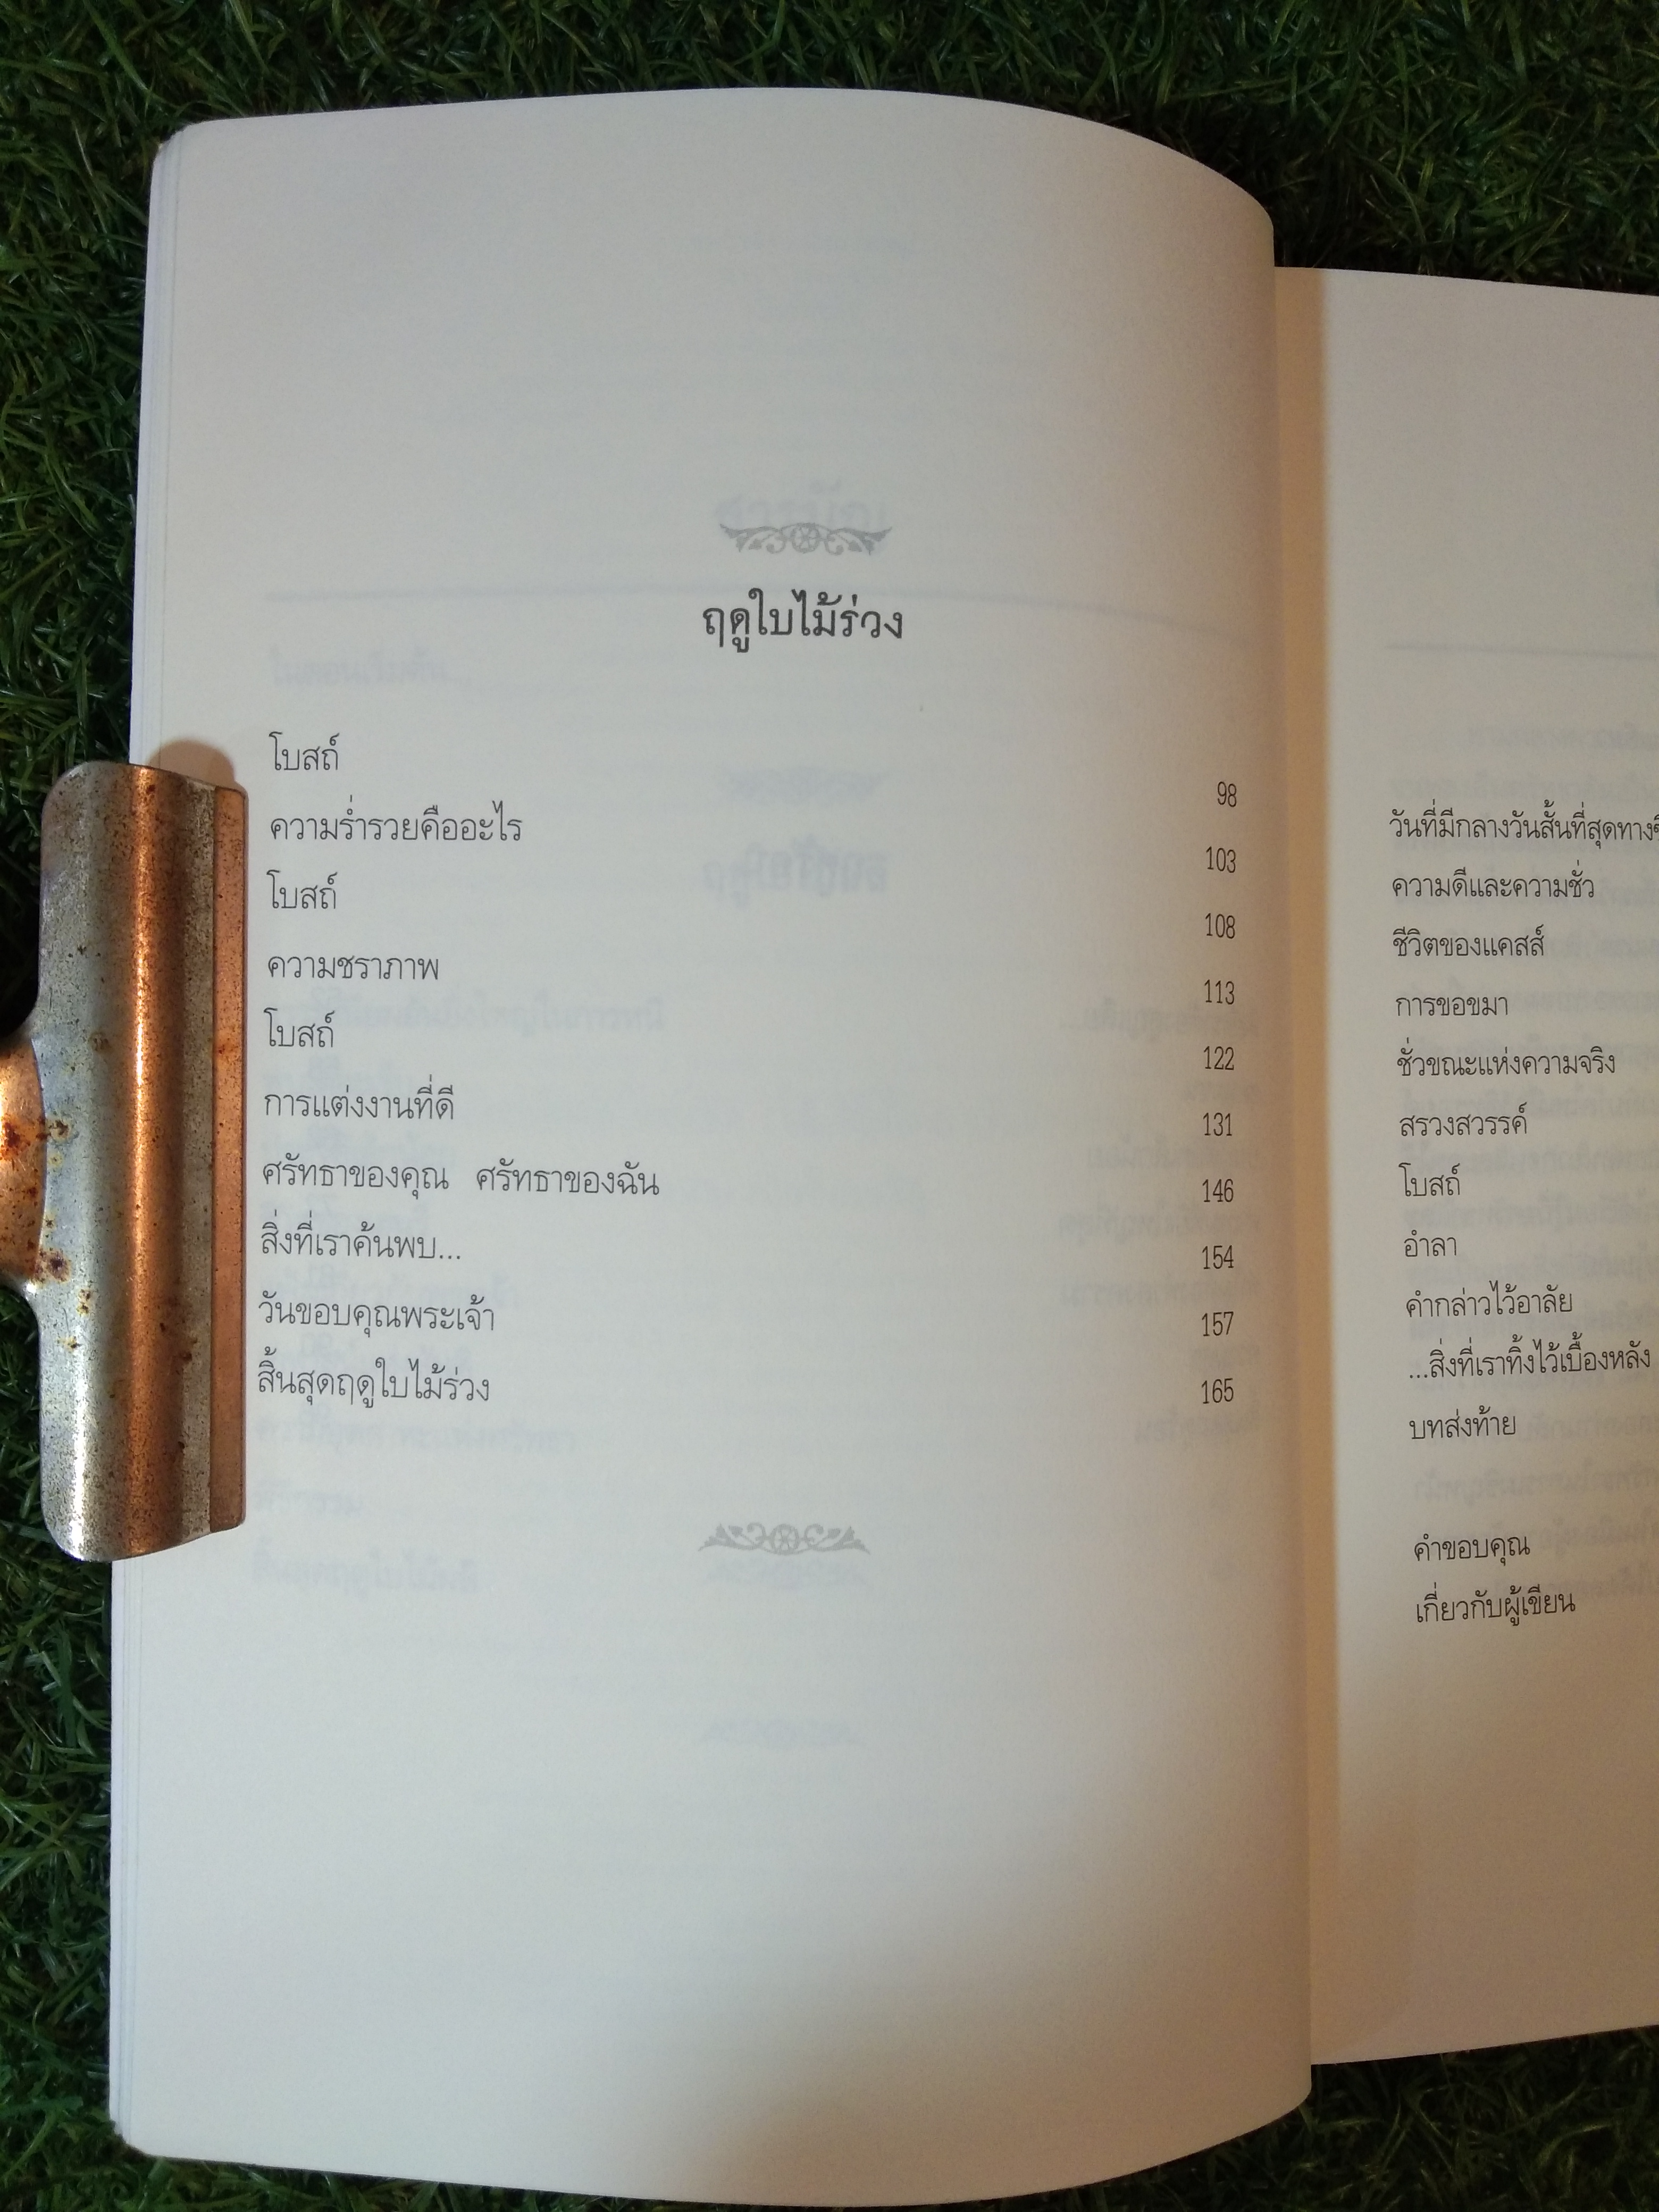 ฤดูใบไม้ร่วง
โบสถ์ 98
ความร่ำรวยคืออะไร 103
โบสถ์ 108
ความชราภาพ 113
โบสถ์ 122
การแต่งงานที่ดี 131
ศรัทธาของคุณ ศรัทธาของฉัน 146
สิ่งที่เราค้นพบ... 154
วันขอบคุณพระเจ้า 157
สิ้นสุดฤดูใบไม้ร่วง 165
วันที่มีกลางวันสั้นที่สุดทาง
ความดีและความชั่ว
ชีวิตของแคสส์
การขอขมา
ชั่วขณะแห่งความจริง
สรวงสวรรค์
โบสถ์
อำลา
คำกล่าวไว้อาลัย
...สิ่งที่เราทิ้งไว้เบื้องหลัง
บทส่งท้าย
คำขอบคุณ
เกี่ยวกับผู้เขียน